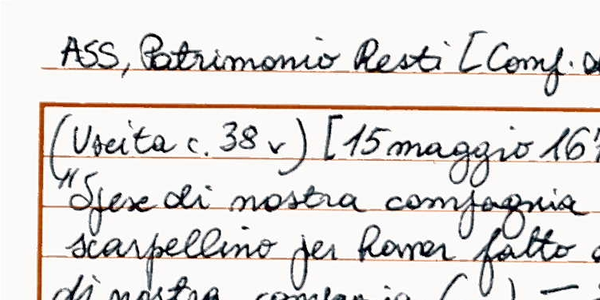 ASS, Patrimonio Resti [Comf.
(Uscita c. 38 v) [15 maggio 16
"Spese di nostra compagnia
scarpellino per haver fatto
di nostra compagnia (  ) —